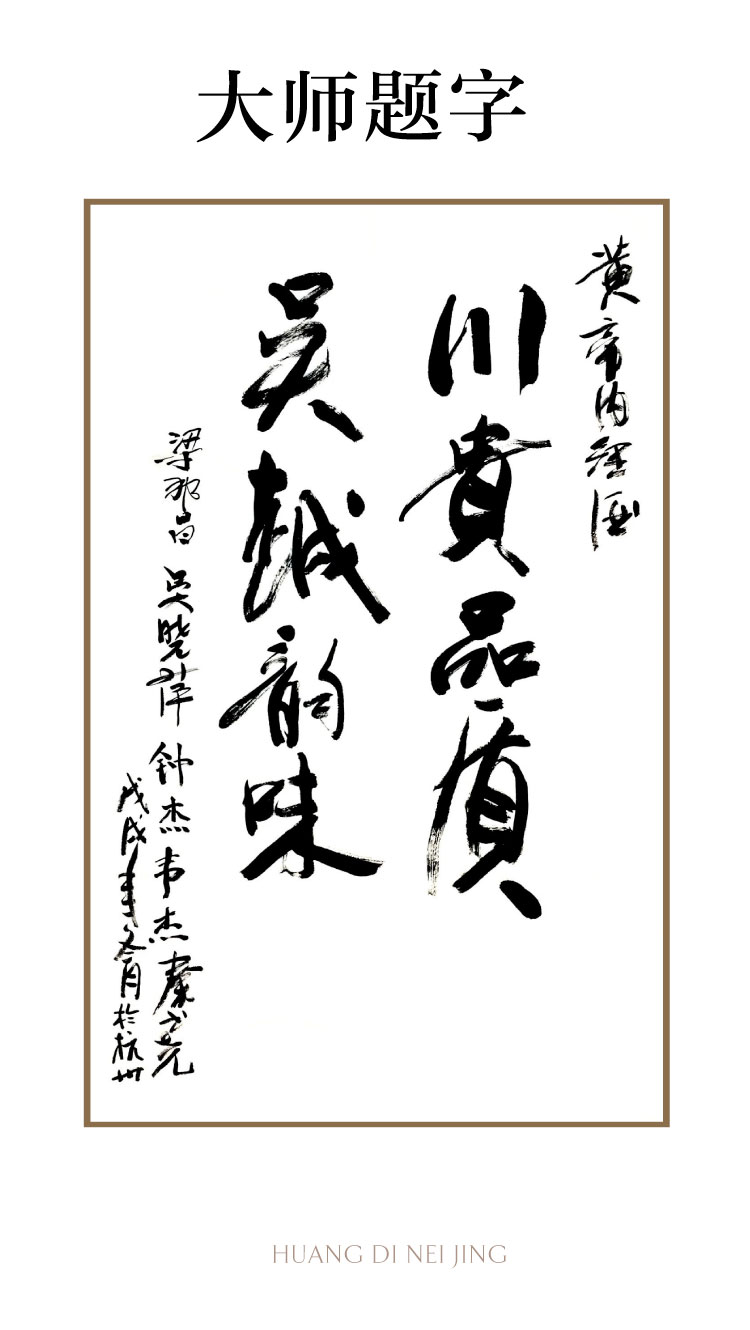 大师题字
黄帝内经酒
川貴品質
吴越韵味
梁邦昌 吴晓萍 钟杰 韦杰 秦
戊戌年 月於杭州
HUANG DI NEI JING